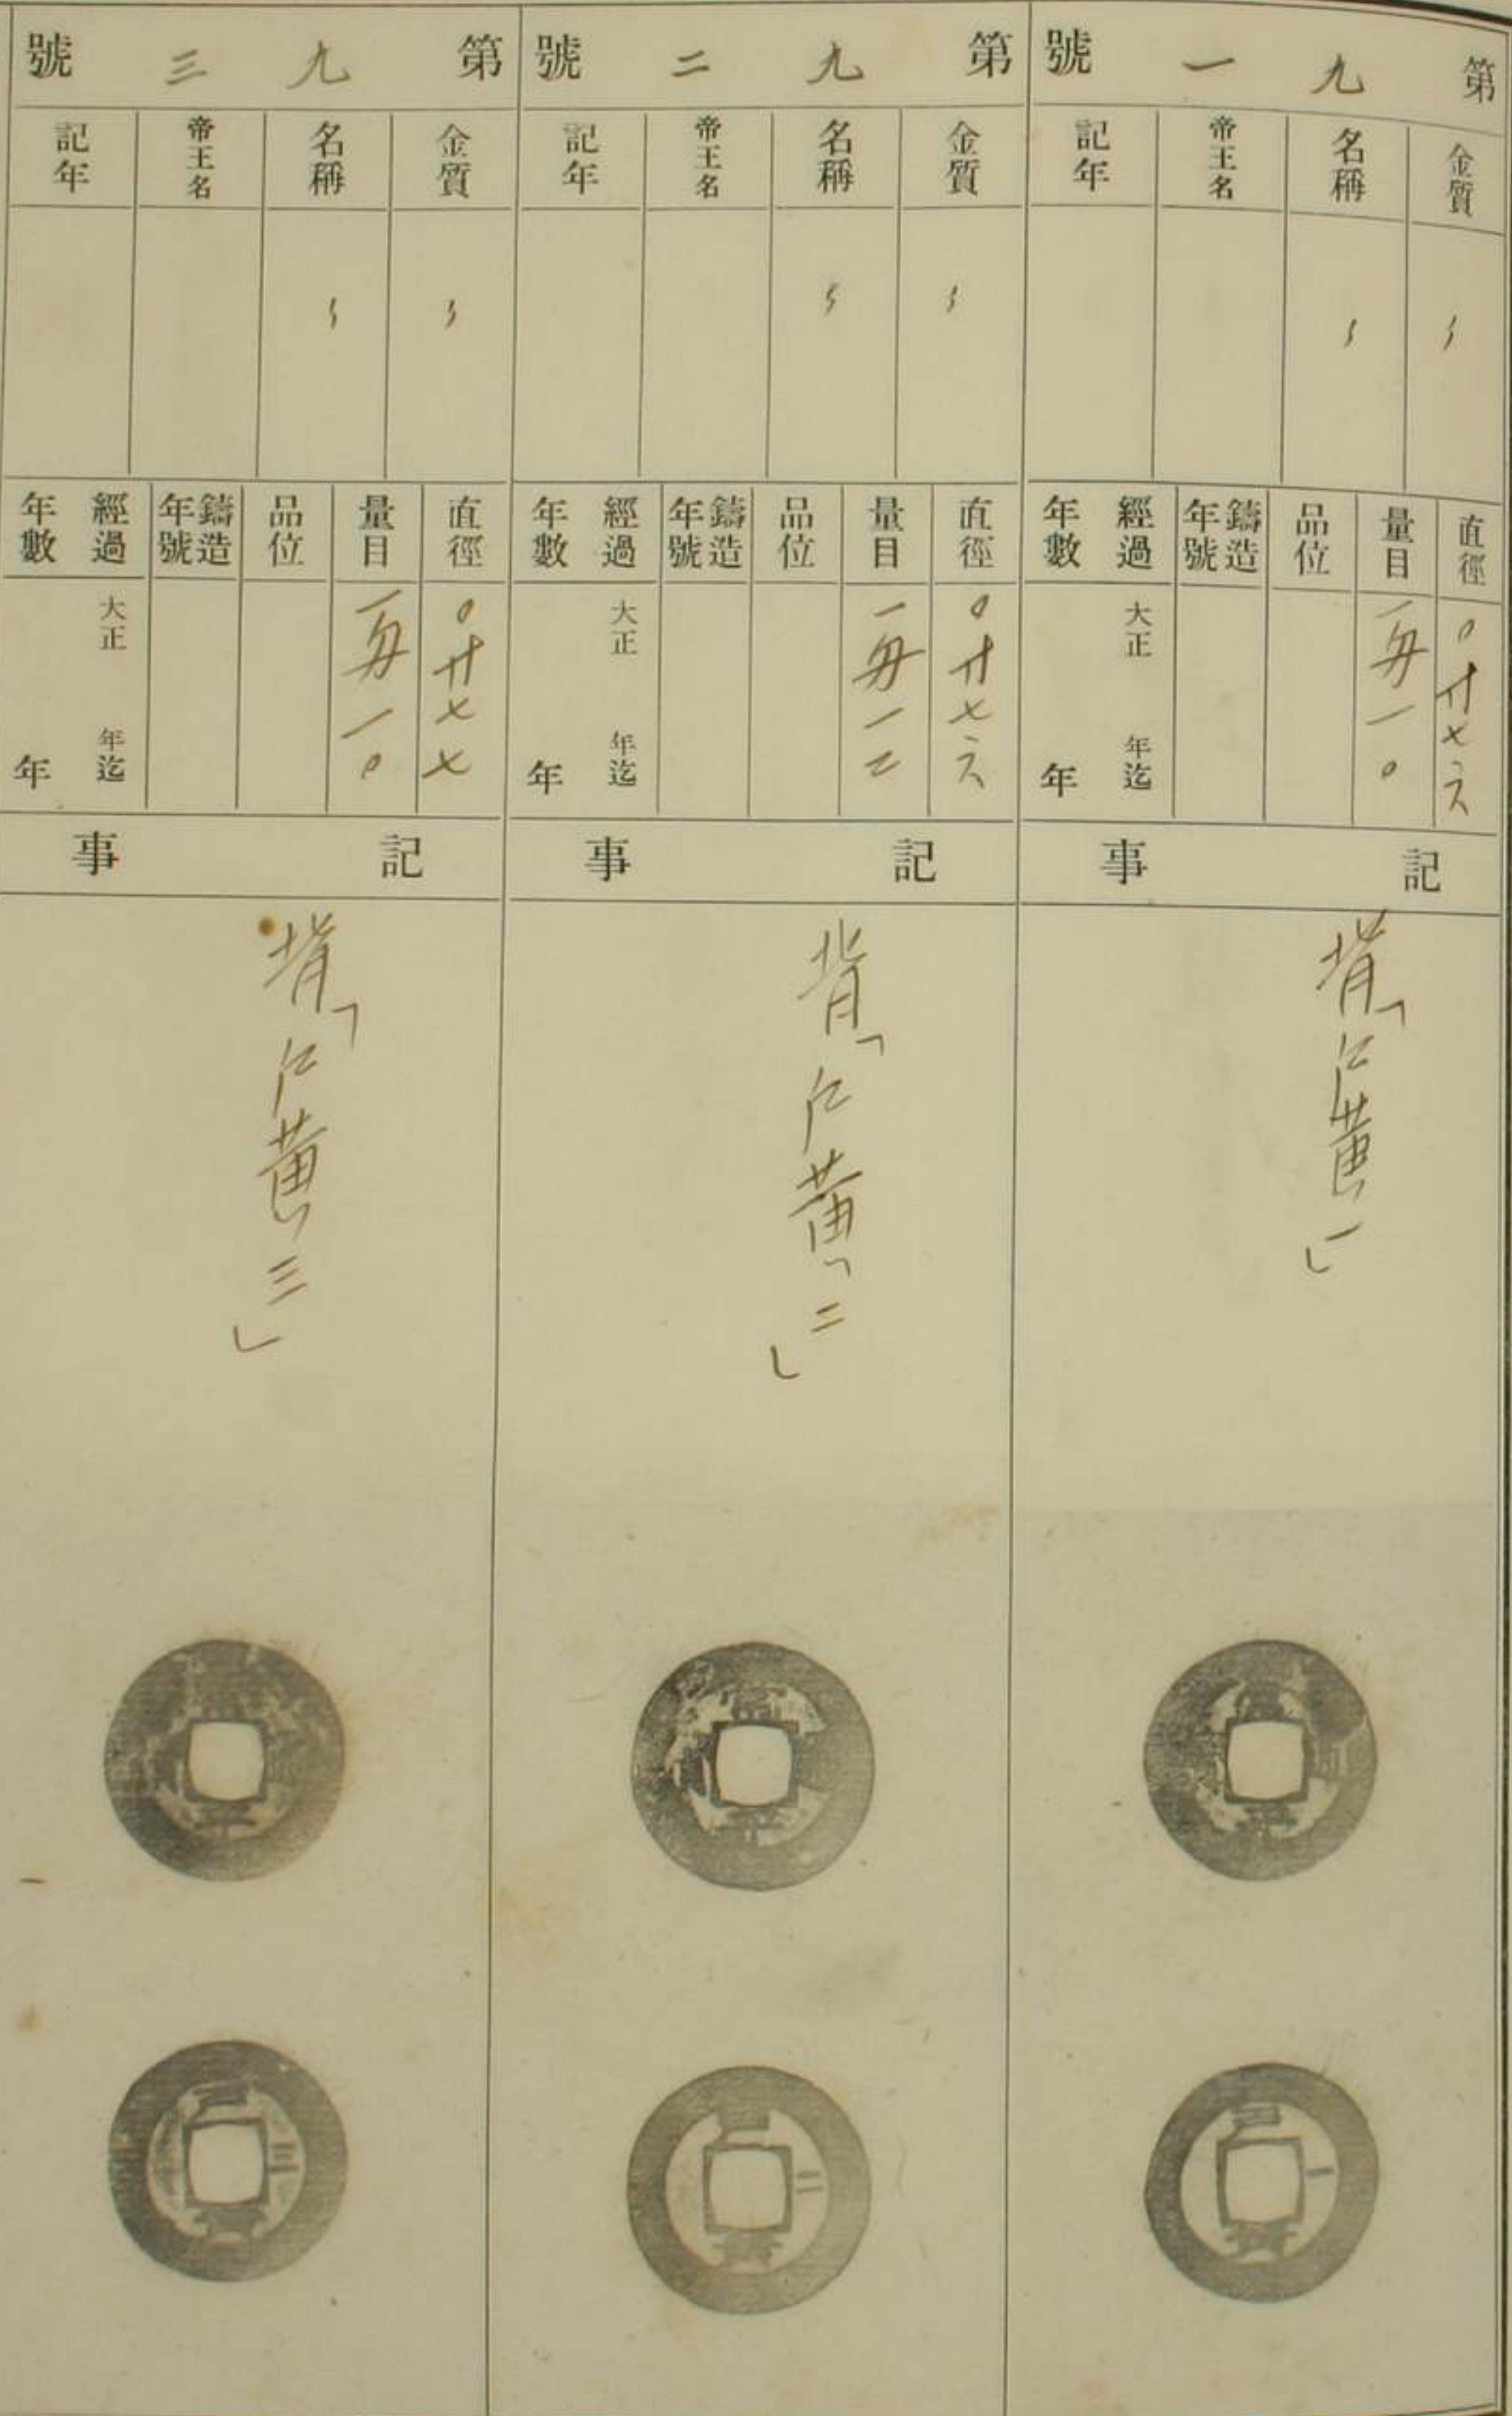 第九一號
金質
名稱
帝王名
記年
〻
〻
直徑
量目
品位
鑄造年號
經過年數
〇寸七六
一匁一〇
大正 年迄
年
記事
背「戶黄一」
第九二號
金質
名稱
帝王名
記年
〻
〻
直徑
量目
品位
鑄造年號
經過年數
〇寸七六
一匁一二
大正 年迄
年
記事
背「戶黄「二」
第九三號
金質
名稱
帝王名
記年
〻
〻
直徑
量目
品位
鑄造年號
經過年數
〇寸七七
一匁一〇
大正 年迄
年
記事
背「戶黄三」
常平
戶一黄
常平
戶二黄
平
戶三黄